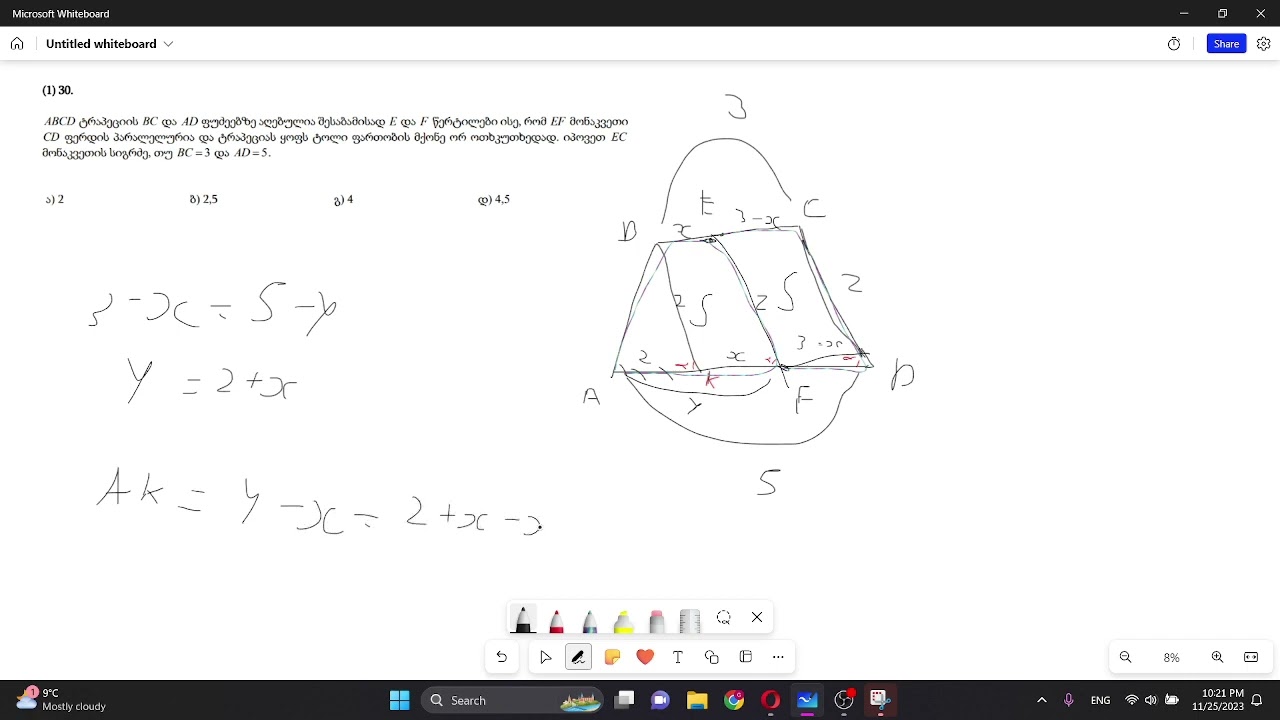 Microsoft Whiteboard
Untitled whiteboard
Share
(1) 30.
ABCD ტრაპეციის BC და AD ფუძეებზე აღებულია შესაბამისად E და F წერტილები ისე, რომ EF მონაკვეთი
CD ფერდის პარალელურია და ტრაპეციას ყოფს ტოლი ფართობის მქონე ორ ოთხკუთხედად. იპოვეთ EC
მონაკვეთის სიგრძე, თუ BC = 3 და AD = 5.
ა) 2 ბ) 2,5 გ) 4 დ) 4,5
3
E C
B x 3-x
2 S 2 S 2
2 x 3-x
K
A y F D
5
3-x = 5-y
y = 2+x
AK = y-x = 2+x-
8%
9°C
Mostly cloudy
1
Search
ENG
10:21 PM
11/25/2023